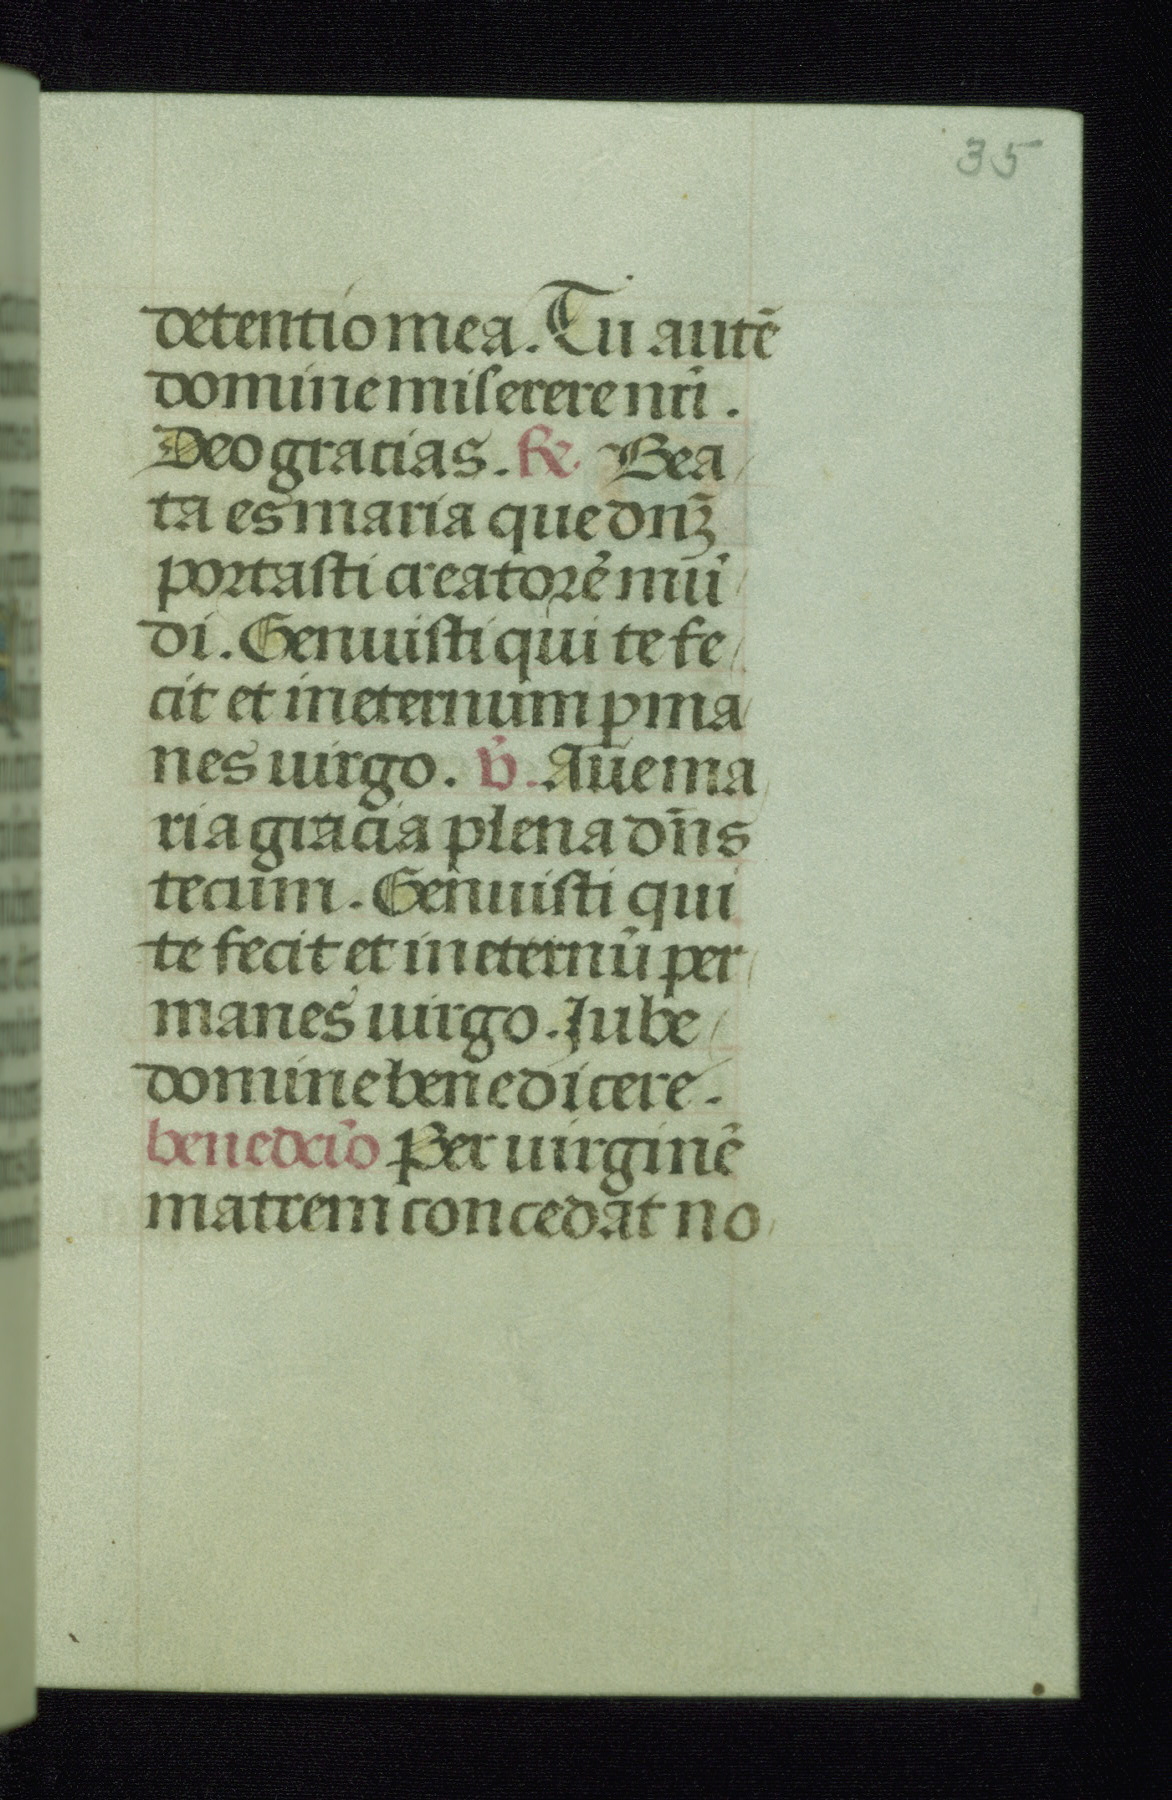 35
detentio mea. Tu autē
domine miserere nr̄i.
Deo gracias. ℟. Bea
ta es maria que dnꝫ
portasti creatorē mū
di. Genuisti qui te fe
cit et in eternum ꝑma
nes uirgo. ℣. Aue ma
ria gracia plena dn̄s
tecum. Genuisti qui
te fecit et in eternū per
manes uirgo. Iube
domine benedicere.
benedcīo Per uirginē
matrem concedat no